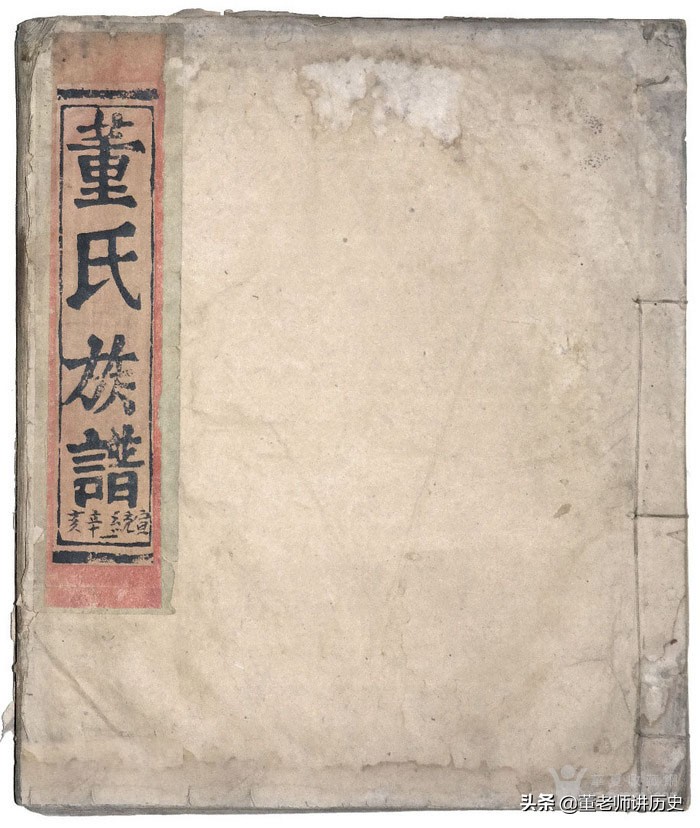 董氏族譜
宣統三辛亥
头条 @董老师讲历史